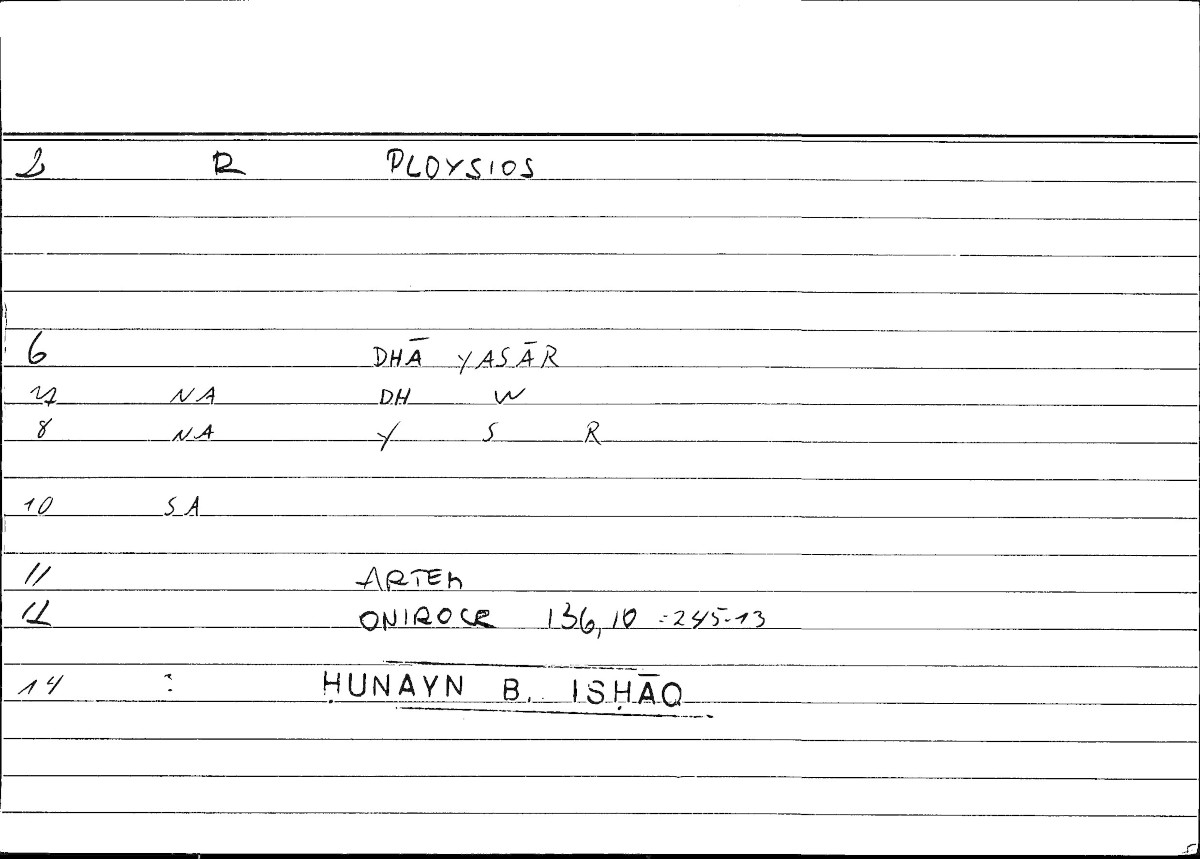 2 R PLOYSIOS
6 DHĀ YASĀR
7 NA DH W
8 NA Y S R
10 SA
11 ARTEM
12 ONIROCR 136,10 = 245.13
14 : ḤUNAYN B. ISḤĀQ